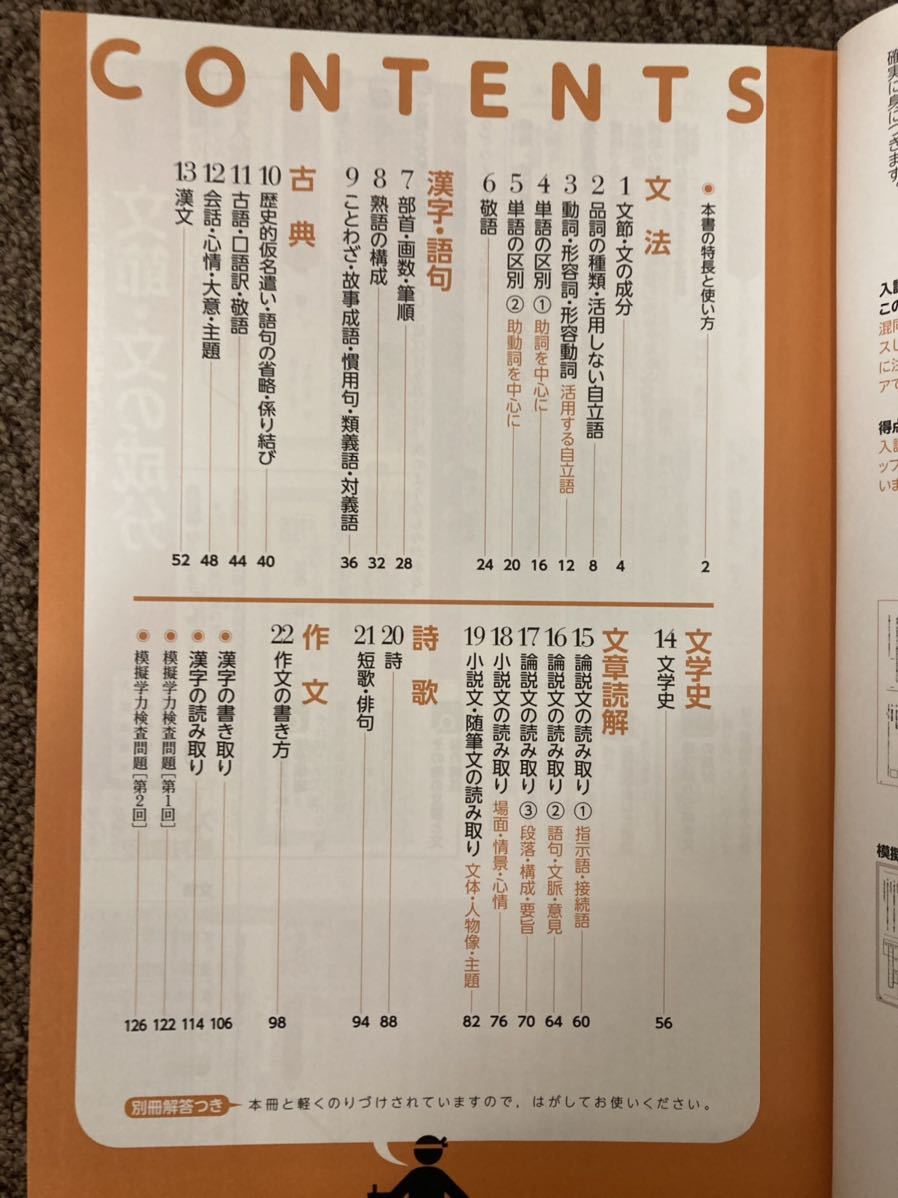 CONTENTS
◉ 本書の特長と使い方 2
文法
1 文節・文の成分 4
2 品詞の種類・活用しない自立語 8
3 動詞・形容詞・形容動詞 活用する自立語 12
4 単語の区別 ① 助詞を中心に 16
5 単語の区別 ② 助動詞を中心に 20
6 敬語 24
漢字・語句
7 部首・画数・筆順 28
8 熟語の構成 32
9 ことわざ・故事成語・慣用句・類義語・対義語 36
古典
10 歴史的仮名遣い・語句の省略・係り結び 40
11 古語・口語訳・敬語 44
12 会話・心情・大意・主題 48
13 漢文 52
文学史
14 文学史 56
文章読解
15 論説文の読み取り ① 指示語・接続語 60
16 論説文の読み取り ② 語句・文脈・意見 64
17 論説文の読み取り ③ 段落・構成・要旨 70
18 小説文の読み取り 場面・情景・心情 76
19 小説文・随筆文の読み取り 文体・人物像・主題 82
詩歌
20 詩 88
21 短歌・俳句 94
作文
22 作文の書き方 98
◉ 漢字の書き取り 106
◉ 漢字の読み取り 114
◉ 模擬学力検査問題[第1回] 122
◉ 模擬学力検査問題[第2回] 126
別冊解答つき 本冊と軽くのりづけされていますので，はがしてお使いください。
確実に身につきます。